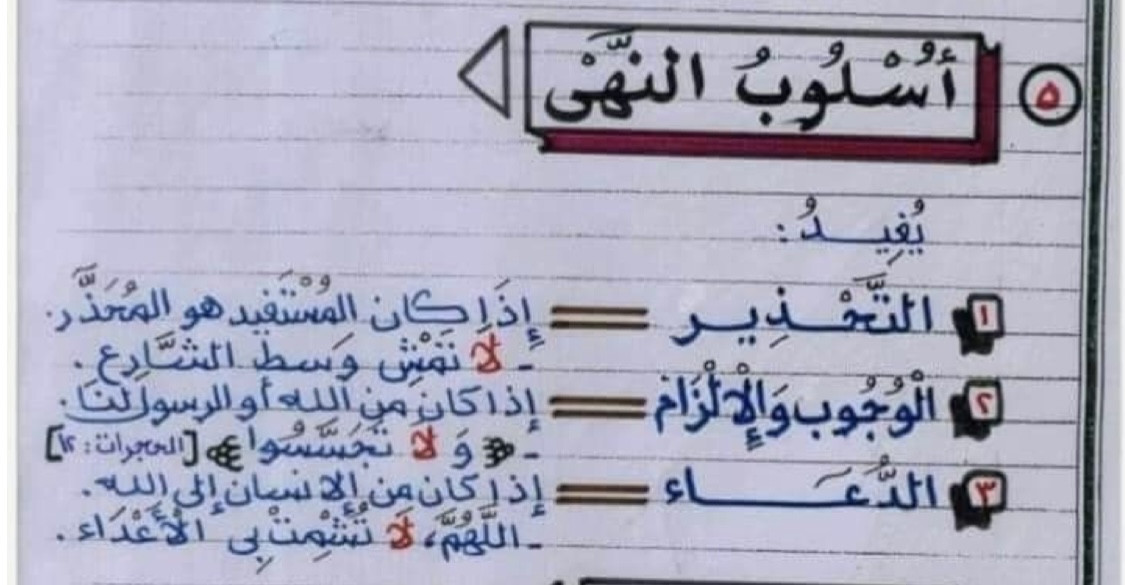 ٥ أُسْلُوبُ النَّهْىِ
يُفِيدُ:
١ التَّحْذِير = إِذَا كان المُسْتَفِيد هو المُحَذَّر.
- لَا تَمْشِ وَسطَ الشَّارِع.
٢ الْوُجُوب وَالْإِلْزَام = إذا كان من الله أو الرسول لَنَا.
- ﴿وَ لَا تَجَسَّسُوا﴾ [الحجرات: ١٢]
٣ الدُّعَاء = إذا كان من الإنسان إلى الله.
- اللَّهُمَّ، لَا تُشْمِتْ بِى الْأَعْدَاء.